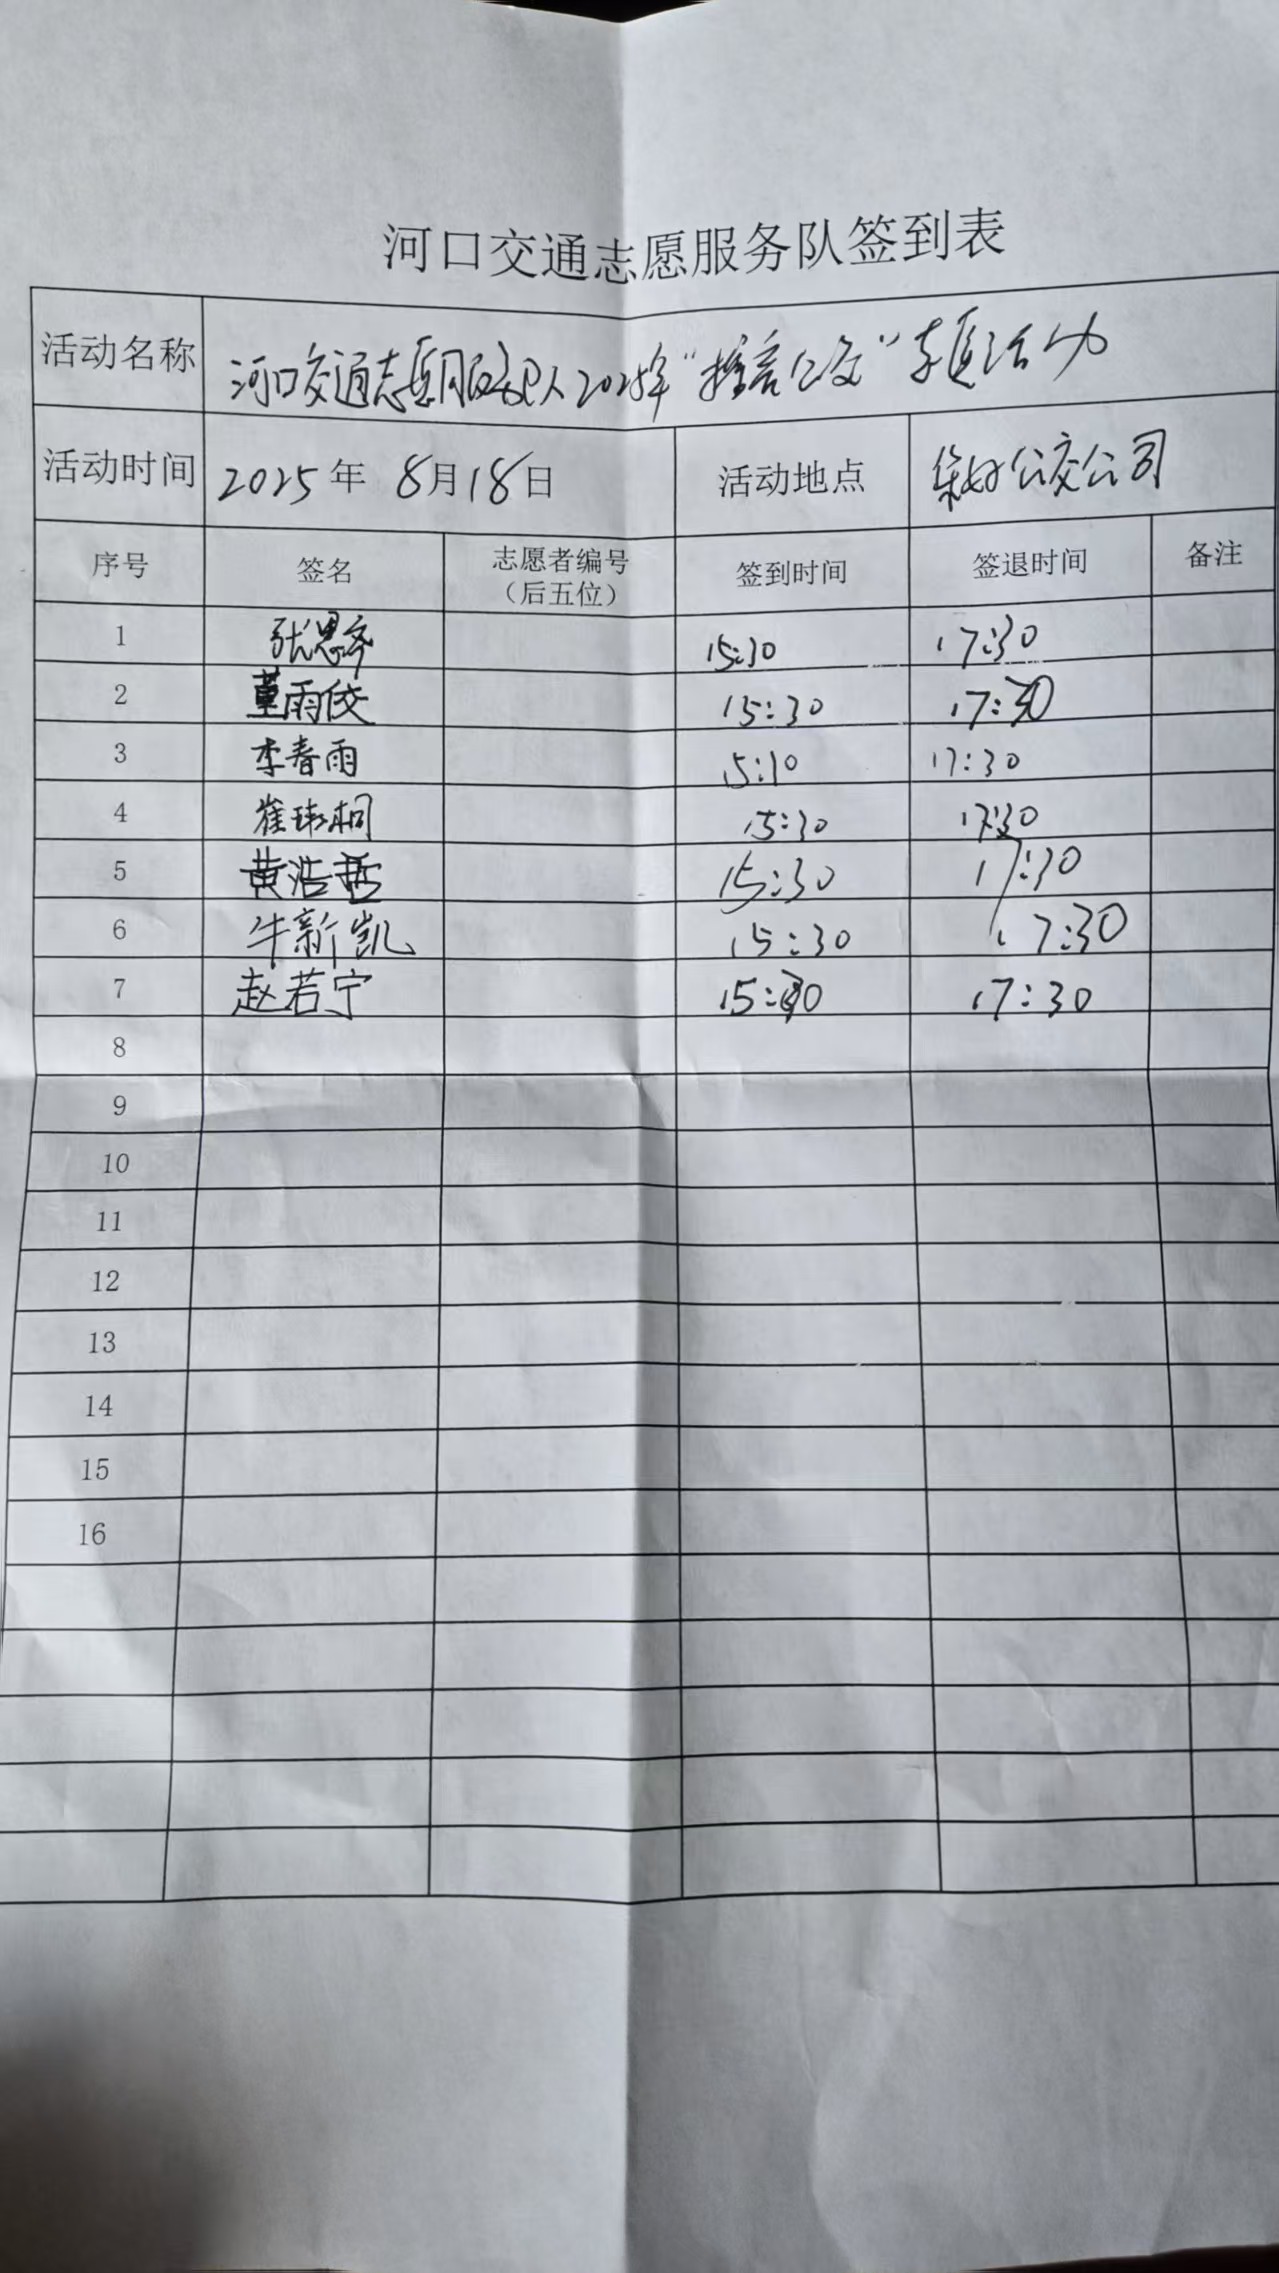 河口交通志愿服务队签到表
活动名称 河口交通志愿服务队2025年" 公交"专题活动
活动时间 2025年 8月18日 活动地点 公交公司
序号 签名 志愿者编号（后五位） 签到时间 签退时间 备注
1 张思齐 15:30 17:30
2 董雨佼 15:30 17:30
3 李春雨 15:10 17:30
4 崔 桐 15:30 17:30
5 黄浩哲 15:30 17:30
6 牛新凯 15:30 17:30
7 赵若宁 15:30 17:30
8
9
10
11
12
13
14
15
16